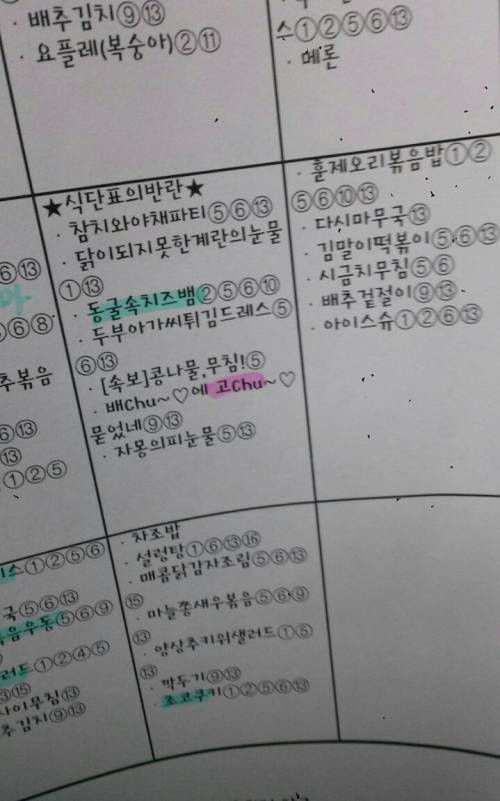 · 배추김치⑨⑬
· 요플레(복숭아)②⑪
수①②⑤⑥⑬
· 메론
★식단표의반란★
· 참치와야채파티⑤⑥⑬
· 닭이되지못한계란의눈물
①⑬
· 동굴속치즈뱀②⑤⑥⑩
· 두부아가씨튀김드레스⑤
⑥⑬
· [속보]콩나물,무침!⑤
· 배Chu~♡에 고Chu~♡
묻었네⑨⑬
· 자몽의피눈물⑤⑬
· 훈제오리볶음밥①②
⑤⑥⑩⑬
· 다시마무국⑬
· 김말이떡볶이⑤⑥⑬
· 시금치무침⑤⑥
· 배추겉절이⑨⑬
· 아이스슈①②⑥⑬
⑥⑬
⑤⑥⑧
추볶음
⑥⑬
⑬
①②⑤
스①②⑤⑥
국⑤⑥⑬
볶음우동⑤⑥⑨
러드①②④⑤
⑬⑮
사이무침⑬
추김치⑨⑬
· 차조밥
· 설렁탕①⑥⑬⑯
· 매콤닭감자조림⑤⑥⑬
⑮
· 마늘쫑새우볶음⑤⑥⑨
⑬
· 양상추키위샐러드①⑤
⑬
· 깍두기⑨⑬
· 초코쿠키①②⑤⑥⑬